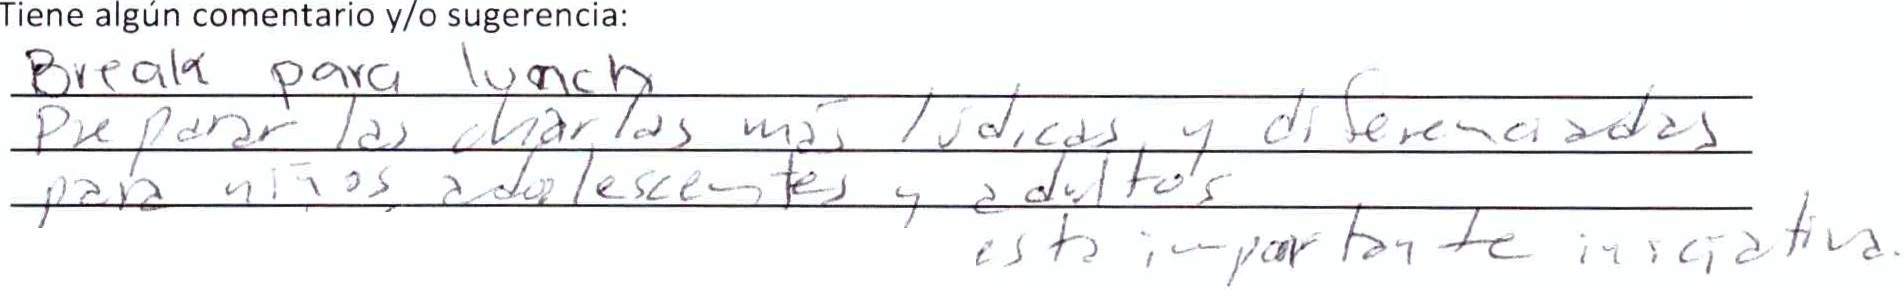 Tiene algún comentario y/o sugerencia:
Break para lunch
Preparar las charlas más lúdicas y diferenciadas
para niños, adolescentes y adultos
esta importante iniciativa.